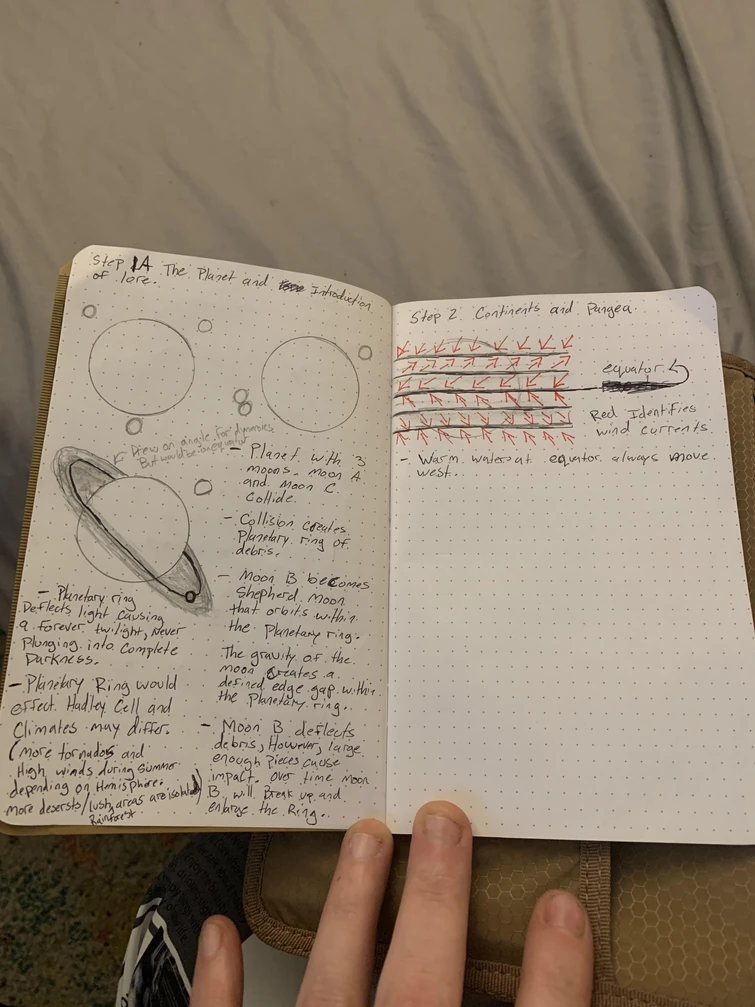 Step 1A The Planet and Introduction
of lore.
Drew on angle for dynamics
But would be on equator
- Planet with 3
moons. Moon A
and Moon C
Collide.
- Collision creates
Planetary ring of
debris.
- Moon B becomes
Shepherd Moon
that orbits within
the Planetary ring.
The gravity of the
moon creates a
defined edge gap within
the Planetary ring.
- Moon B deflects
debris, However, large
enough Pieces cause
impact. over time moon
B will Break up and
enlarge the Ring.
- Planetary ring
Deflects light causing
a forever twilight, Never
Plunging into Complete
Darkness.
- Planetary Ring would
effect Hadley Cell and
Climates may differ.
(more tornados and
High winds during Summer
depending on Hmisphere.
more deserts/lush areas are isolated)
Rainforest
Step 2 Continents and Pangea.
equator
Red Identifies
wind currents
- Warm waters at equator always move
west.